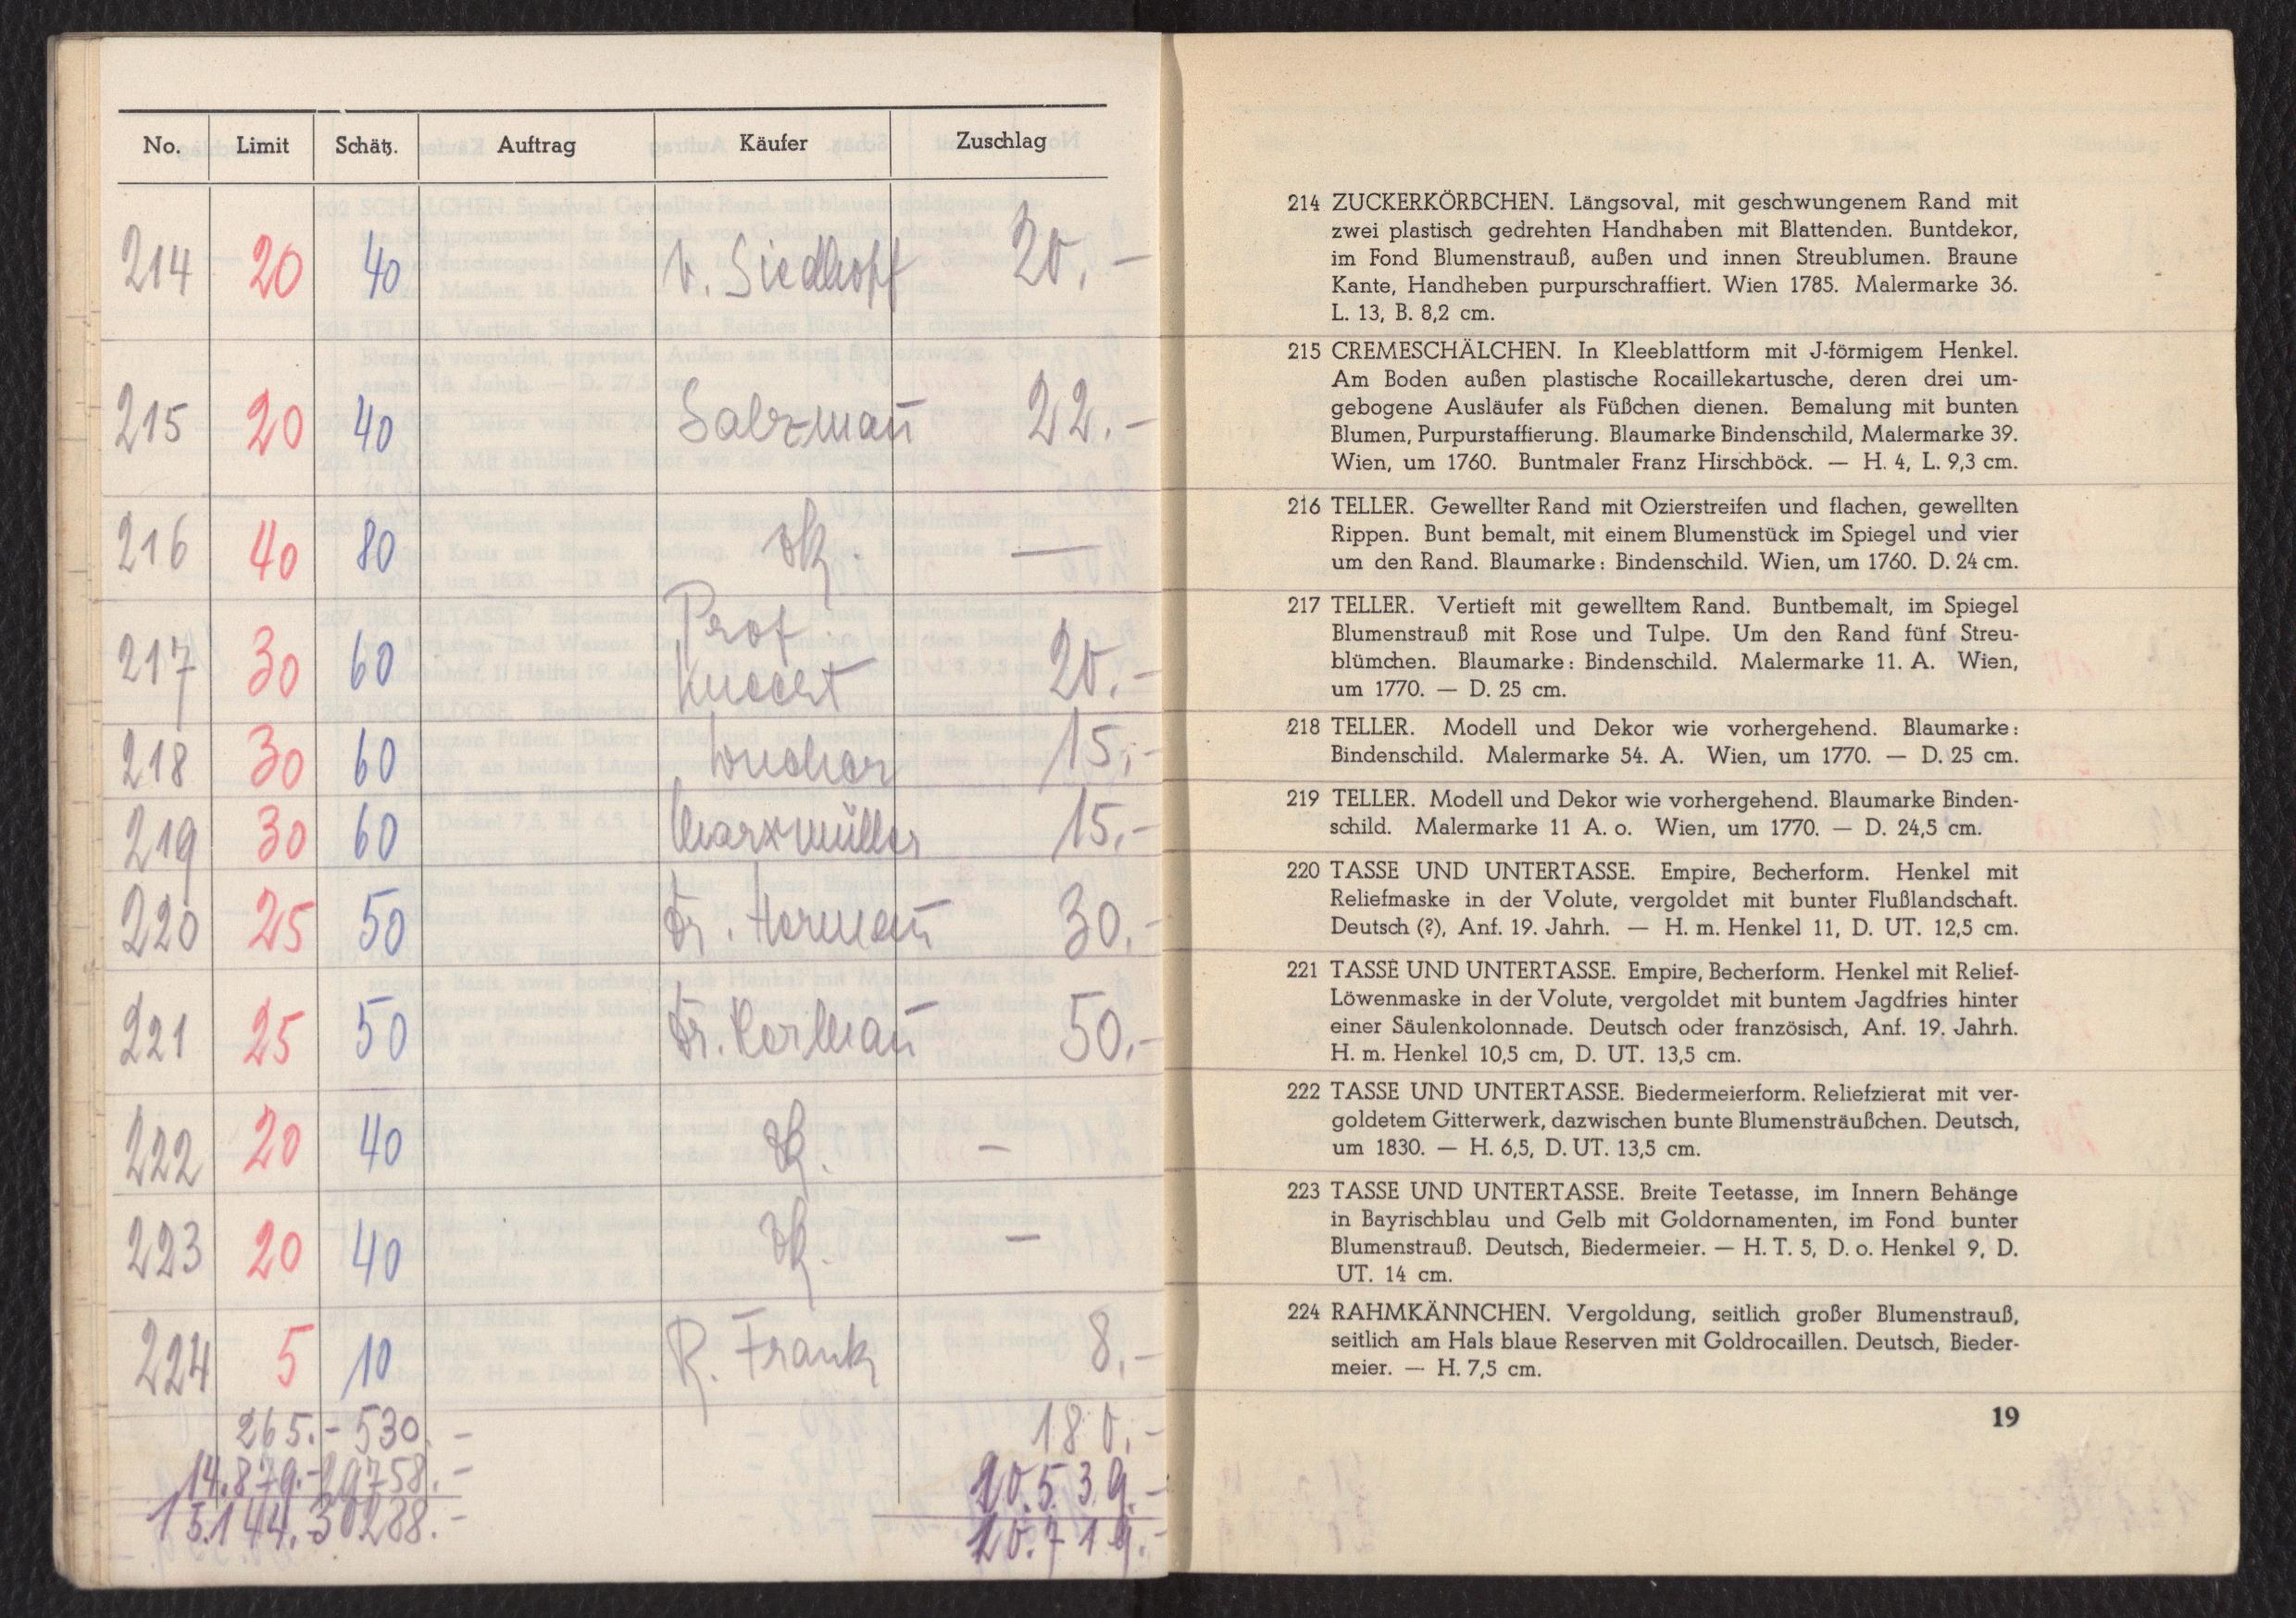 No. Limit Schätz. Auftrag Käufer Zuschlag
214 20 40 v. Siedhoff 20.-
215 20 40 Salzmañ 22.-
216 40 80 zk. —
217 30 60 Prof. Knecht 20.-
218 30 60 15.-
219 30 60 Marxmüller 15.-
220 25 50 Dr. Hermañ 30.-
221 25 50 Dr. 50.-
222 20 40 zk. -
223 20 40 zk. -
224 5 10 R. Frank 8.-
265.- 530.- 180.-
14.879.- 29758.- 10.539.-
15.144.- 30288.- 10.719.-
214 ZUCKERKÖRBCHEN. Längsoval, mit geschwungenem Rand mit
zwei plastisch gedrehten Handhaben mit Blattenden. Buntdekor,
im Fond Blumenstrauß, außen und innen Streublumen. Braune
Kante, Handheben purpurschraffiert. Wien 1785. Malermarke 36.
L. 13, B. 8,2 cm.
215 CREMESCHÄLCHEN. In Kleeblattform mit J-förmigem Henkel.
Am Boden außen plastische Rocaillekartusche, deren drei um-
gebogene Ausläufer als Füßchen dienen. Bemalung mit bunten
Blumen, Purpurstaffierung. Blaumarke Bindenschild, Malermarke 39.
Wien, um 1760. Buntmaler Franz Hirschböck. — H. 4, L. 9,3 cm.
216 TELLER. Gewellter Rand mit Ozierstreifen und flachen, gewellten
Rippen. Bunt bemalt, mit einem Blumenstück im Spiegel und vier
um den Rand. Blaumarke: Bindenschild. Wien, um 1760. D. 24 cm.
217 TELLER. Vertieft mit gewelltem Rand. Buntbemalt, im Spiegel
Blumenstrauß mit Rose und Tulpe. Um den Rand fünf Streu-
blümchen. Blaumarke: Bindenschild. Malermarke 11. A. Wien,
um 1770. — D. 25 cm.
218 TELLER. Modell und Dekor wie vorhergehend. Blaumarke:
Bindenschild. Malermarke 54. A. Wien, um 1770. — D. 25 cm.
219 TELLER. Modell und Dekor wie vorhergehend. Blaumarke Binden-
schild. Malermarke 11 A. o. Wien, um 1770. — D. 24,5 cm.
220 TASSE UND UNTERTASSE. Empire, Becherform. Henkel mit
Reliefmaske in der Volute, vergoldet mit bunter Flußlandschaft.
Deutsch (?), Anf. 19. Jahrh. — H. m. Henkel 11, D. UT. 12,5 cm.
221 TASSE UND UNTERTASSE. Empire, Becherform. Henkel mit Relief-
Löwenmaske in der Volute, vergoldet mit buntem Jagdfries hinter
einer Säulenkolonnade. Deutsch oder französisch, Anf. 19. Jahrh.
H. m. Henkel 10,5 cm, D. UT. 13,5 cm.
222 TASSE UND UNTERTASSE. Biedermeierform. Reliefzierat mit ver-
goldetem Gitterwerk, dazwischen bunte Blumensträußchen. Deutsch,
um 1830. — H. 6,5, D. UT. 13,5 cm.
223 TASSE UND UNTERTASSE. Breite Teetasse, im Innern Behänge
in Bayrischblau und Gelb mit Goldornamenten, im Fond bunter
Blumenstrauß. Deutsch, Biedermeier. — H. T. 5, D. o. Henkel 9, D.
UT. 14 cm.
224 RAHMKÄNNCHEN. Vergoldung, seitlich großer Blumenstrauß,
seitlich am Hals blaue Reserven mit Goldrocaillen. Deutsch, Bieder-
meier. — H. 7,5 cm.
19